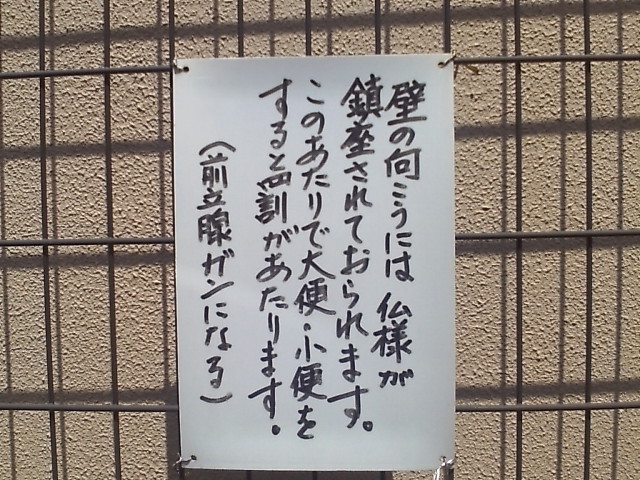 壁の向こうには 仏様が
鎮座されておられます。
このあたりで大便・小便を
すると罰があたります。
(前立腺ガンになる)